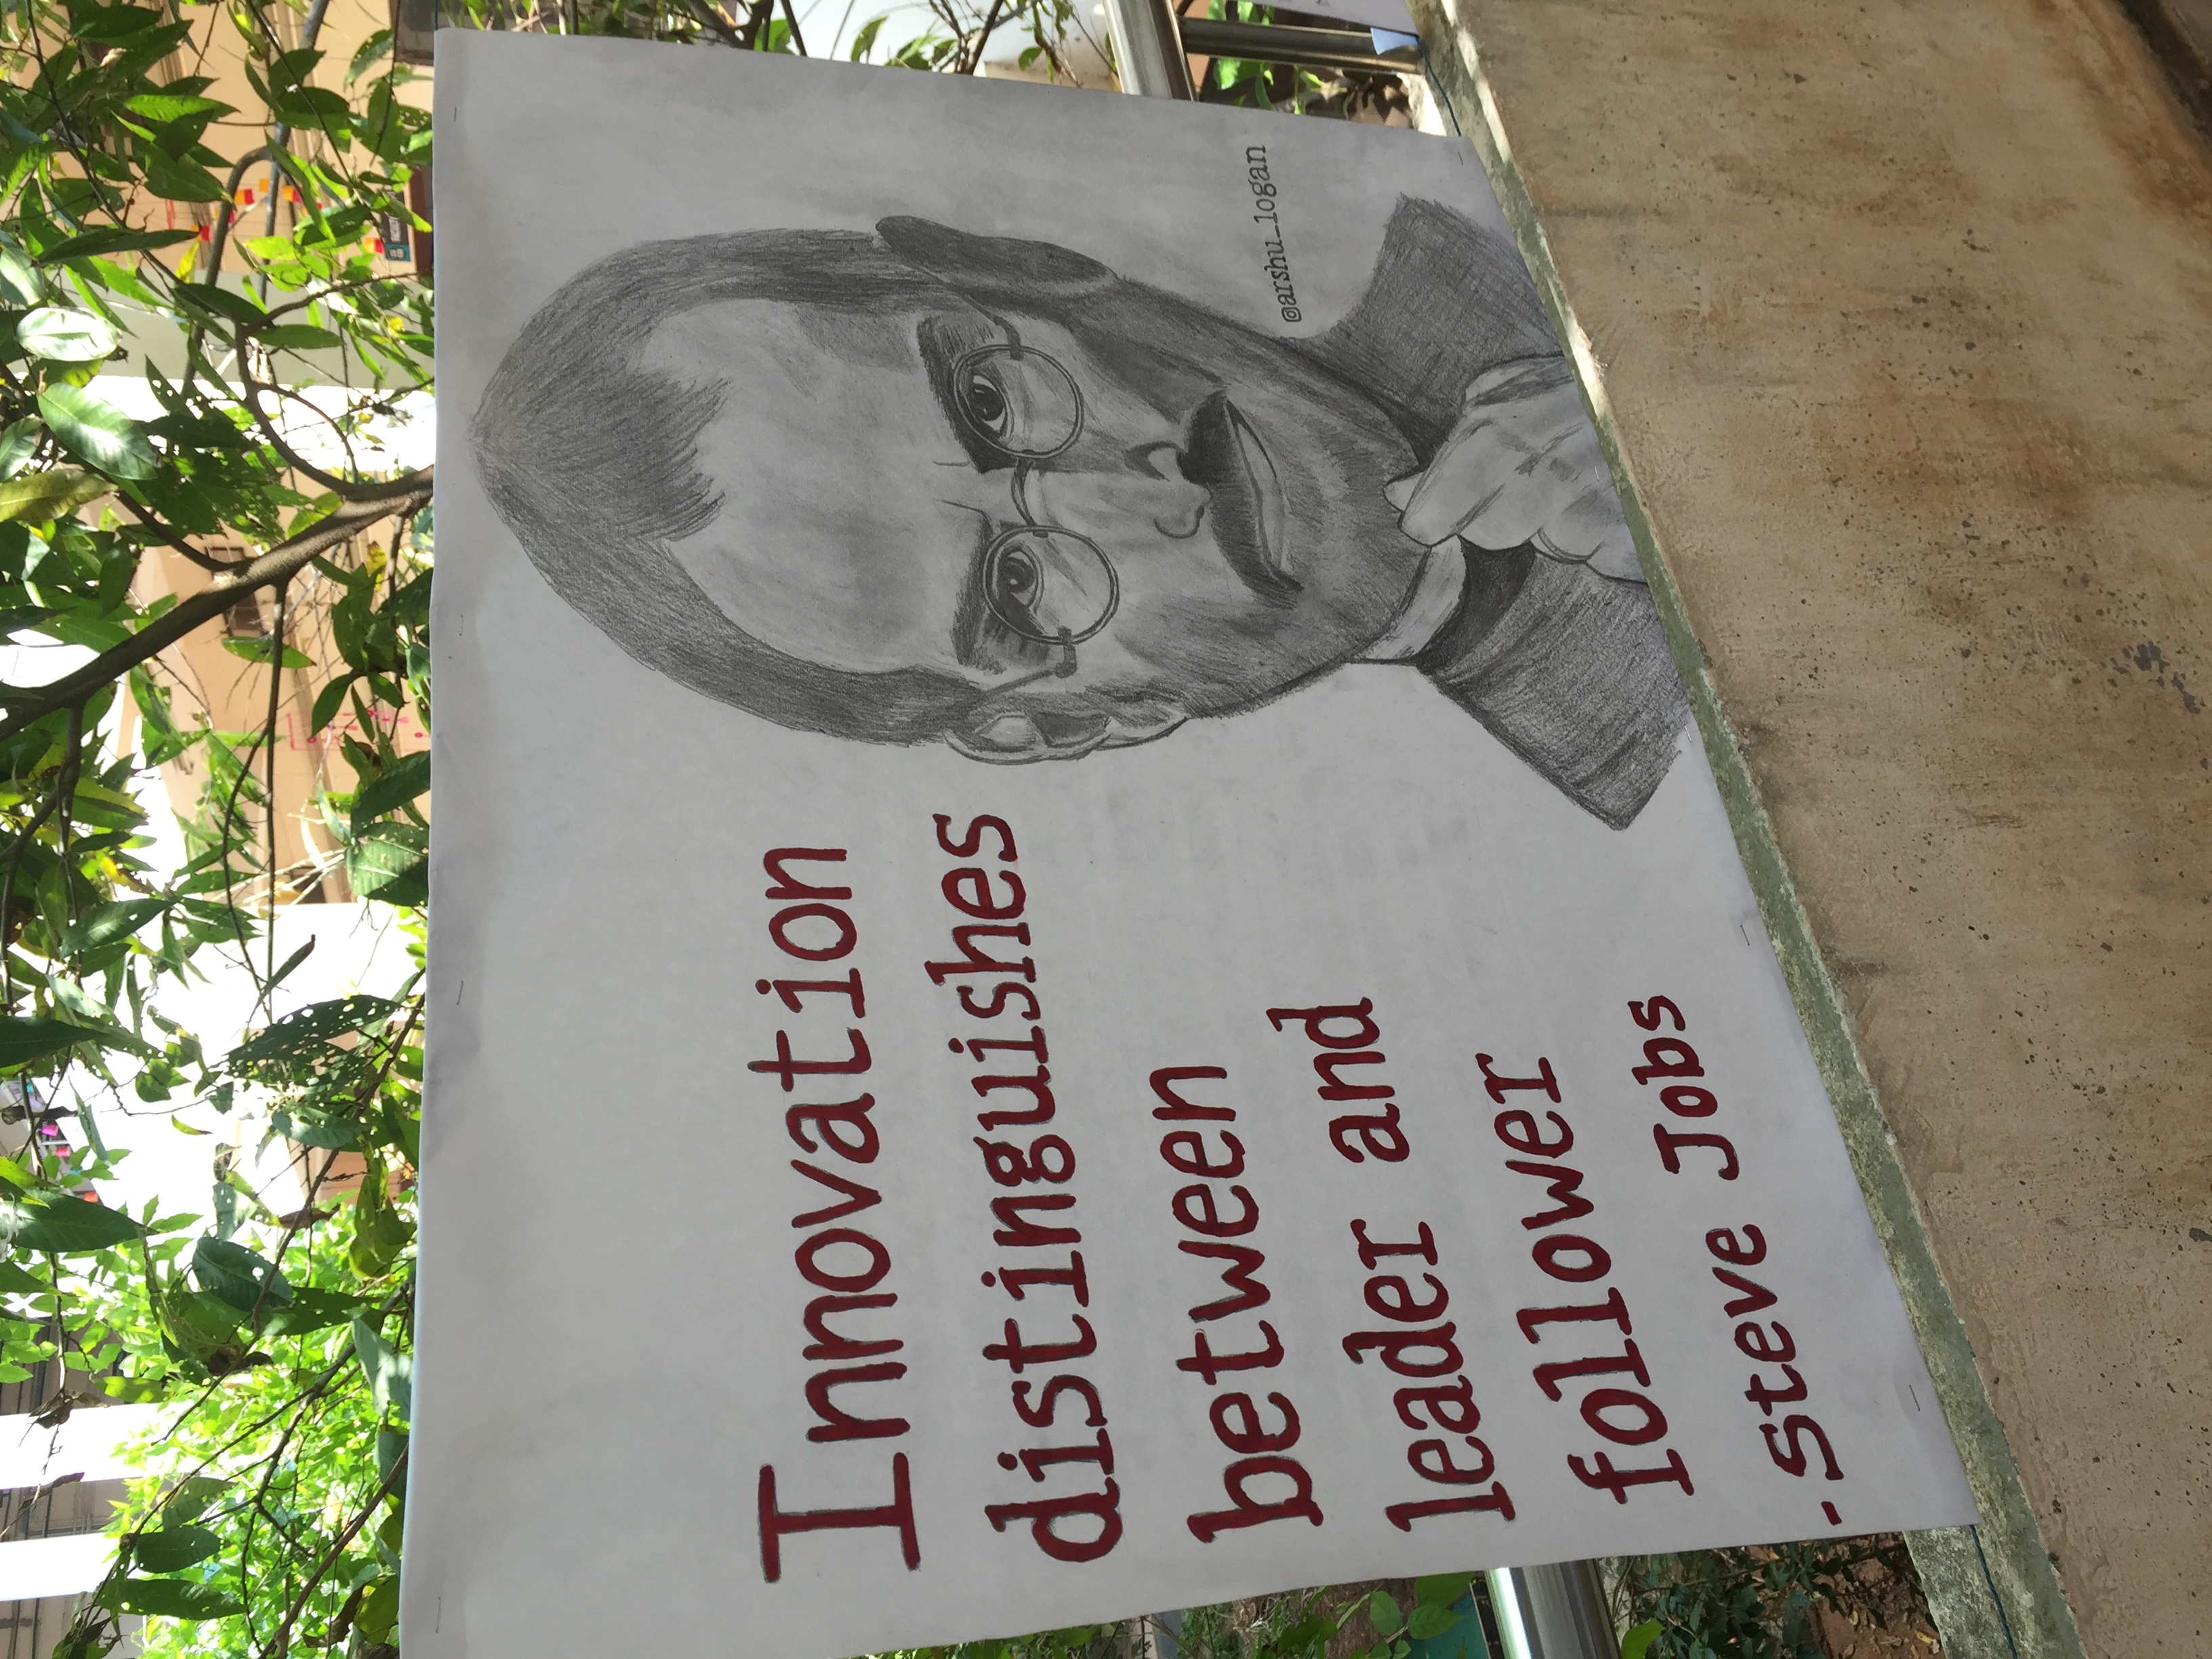 Innovation
distinguishes
between
leader and
follower
-Steve Jobs
@arshu_logan
FACULTY